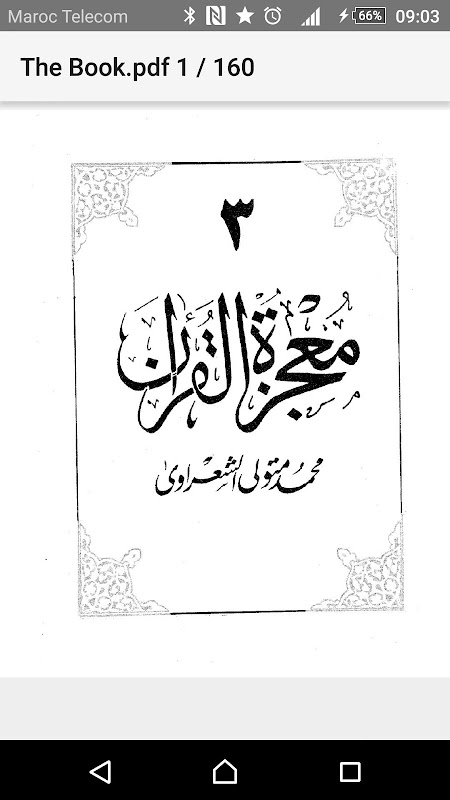 Maroc Telecom 66% 09:03
The Book.pdf 1 / 160
٣
معجزة القرآن
محمد متولى الشعراوى